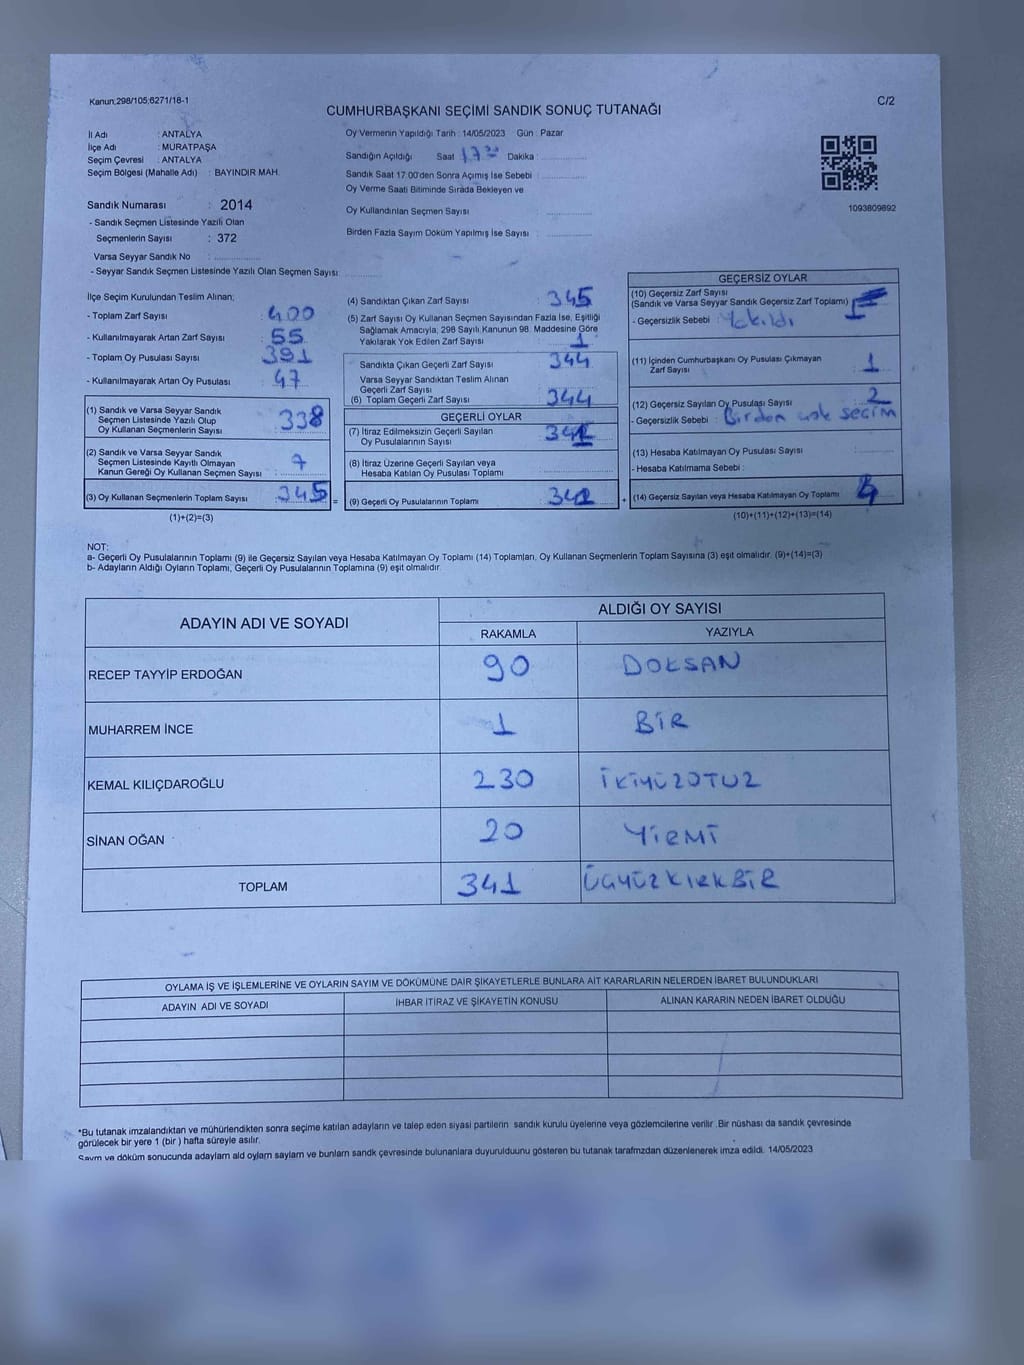 Kanun:298/105;6271/18-1
C/2
CUMHURBAŞKANI SEÇİMİ SANDIK SONUÇ TUTANAĞI
İl Adı : ANTALYA
İlçe Adı : MURATPAŞA
Seçim Çevresi : ANTALYA
Seçim Bölgesi (Mahalle Adı) : BAYINDIR MAH.
Sandık Numarası : 2014
- Sandık Seçmen Listesinde Yazılı Olan
Seçmenlerin Sayısı : 372
Varsa Seyyar Sandık No :
- Seyyar Sandık Seçmen Listesinde Yazılı Olan Seçmen Sayısı:
Oy Vermenin Yapıldığı Tarih : 14/05/2023 Gün : Pazar
Sandığın Açıldığı Saat 17 30 Dakika :
Sandık Saat 17:00'den Sonra Açımış İse Sebebi :
Oy Verme Saati Bitiminde Sırada Bekleyen ve
Oy Kullandırılan Seçmen Sayısı :
Birden Fazla Sayım Döküm Yapılmış İse Sayısı :
1093809892
İlçe Seçim Kurulundan Teslim Alınan;
- Toplam Zarf Sayısı : 400
- Kullanılmayarak Artan Zarf Sayısı : 55
- Toplam Oy Pusulası Sayısı : 391
- Kullanılmayarak Artan Oy Pusulası : 47
(1) Sandık ve Varsa Seyyar Sandık
Seçmen Listesinde Yazılı Olup
Oy Kullanan Seçmenlerin Sayısı : 338
(2) Sandık ve Varsa Seyyar Sandık
Seçmen Listesinde Kayıtlı Olmayan
Kanun Gereği Oy Kullanan Seçmen Sayısı : 7
(3) Oy Kullanan Seçmenlerin Toplam Sayısı : 345 =
(1)+(2)=(3)
(4) Sandıktan Çıkan Zarf Sayısı : 345
(5) Zarf Sayısı Oy Kullanan Seçmen Sayısından Fazla İse, Eşitliği
Sağlamak Amacıyla; 298 Sayılı Kanunun 98. Maddesine Göre
Yakılarak Yok Edilen Zarf Sayısı : 1
Sandıkta Çıkan Geçerli Zarf Sayısı : 344
Varsa Seyyar Sandıktan Teslim Alınan
Geçerli Zarf Sayısı :
(6) Toplam Geçerli Zarf Sayısı : 344
GEÇERLİ OYLAR
(7) İtiraz Edilmeksizin Geçerli Sayılan
Oy Pusulalarının Sayısı :
(8) İtiraz Üzerine Geçerli Sayılan veya
Hesaba Katılan Oy Pusulası Toplamı :
(9) Geçerli Oy Pusulalarının Toplamı : +
GEÇERSİZ OYLAR
(10) Geçersiz Zarf Sayısı
(Sandık ve Varsa Seyyar Sandık Geçersiz Zarf Toplamı) :
- Geçersizlik Sebebi : Yakıldı
(11) İçinden Cumhurbaşkanı Oy Pusulası Çıkmayan
Zarf Sayısı : 1
(12) Geçersiz Sayılan Oy Pusulası Sayısı : 2
- Geçersizlik Sebebi : Birden çok seçim
(13) Hesaba Katılmayan Oy Pusulası Sayısı :
- Hesaba Katılmama Sebebi :
(14) Geçersiz Sayılan veya Hesaba Katılmayan Oy Toplamı :
(10)+(11)+(12)+(13)=(14)
NOT:
a- Geçerli Oy Pusulalarının Toplamı (9) ile Geçersiz Sayılan veya Hesaba Katılmayan Oy Toplamı (14) Toplamları, Oy Kullanan Seçmenlerin Toplam Sayısına (3) eşit olmalıdır. (9)+(14)=(3)
b- Adayların Aldığı Oyların Toplamı, Geçerli Oy Pusulalarının Toplamına (9) eşit olmalıdır.
ADAYIN ADI VE SOYADI
ALDIĞI OY SAYISI
RAKAMLA YAZIYLA
RECEP TAYYİP ERDOĞAN 90 DOKSAN
MUHARREM İNCE 1 BİR
KEMAL KILIÇDAROĞLU 230 İKİYÜZOTUZ
SİNAN OĞAN 20 YİRMİ
TOPLAM 341 ÜÇYÜZKIRKBİR
OYLAMA İŞ VE İŞLEMLERİNE VE OYLARIN SAYIM VE DÖKÜMÜNE DAİR ŞİKAYETLERLE BUNLARA AİT KARARLARIN NELERDEN İBARET BULUNDUKLARI
ADAYIN ADI VE SOYADI İHBAR İTİRAZ VE ŞİKAYETİN KONUSU ALINAN KARARIN NEDEN İBARET OLDUĞU
*Bu tutanak imzalandıktan ve mühürlendikten sonra seçime katılan adayların ve talep eden siyasi partilerin sandık kurulu üyelerine veya gözlemcilerine verilir .Bir nüshası da sandık çevresinde
görülecek bir yere 1 (bir ) hafta süreyle asılır.
Sayım ve döküm sonucunda adayların aldığı oyların sayıları ve bunların sandık çevresinde bulunanlara duyurulduğunu gösteren bu tutanak tarafımızdan düzenlenerek imza edildi. 14/05/2023